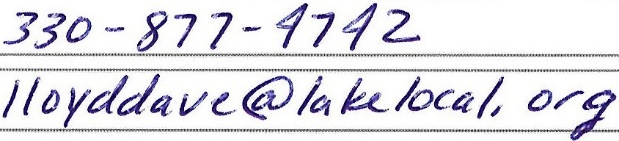 330-877-4742
lloyddave@lakelocal.org